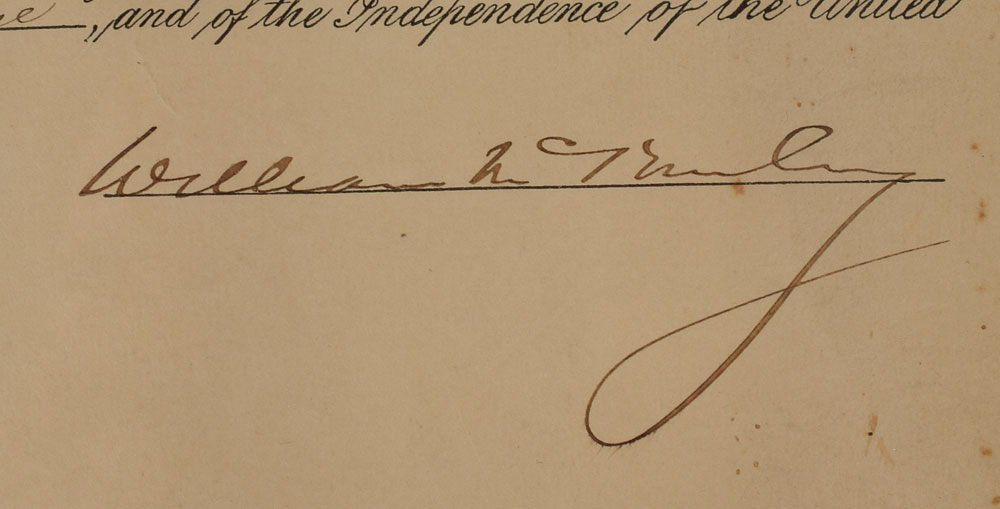 , and of the Independence of the United
William McKinley